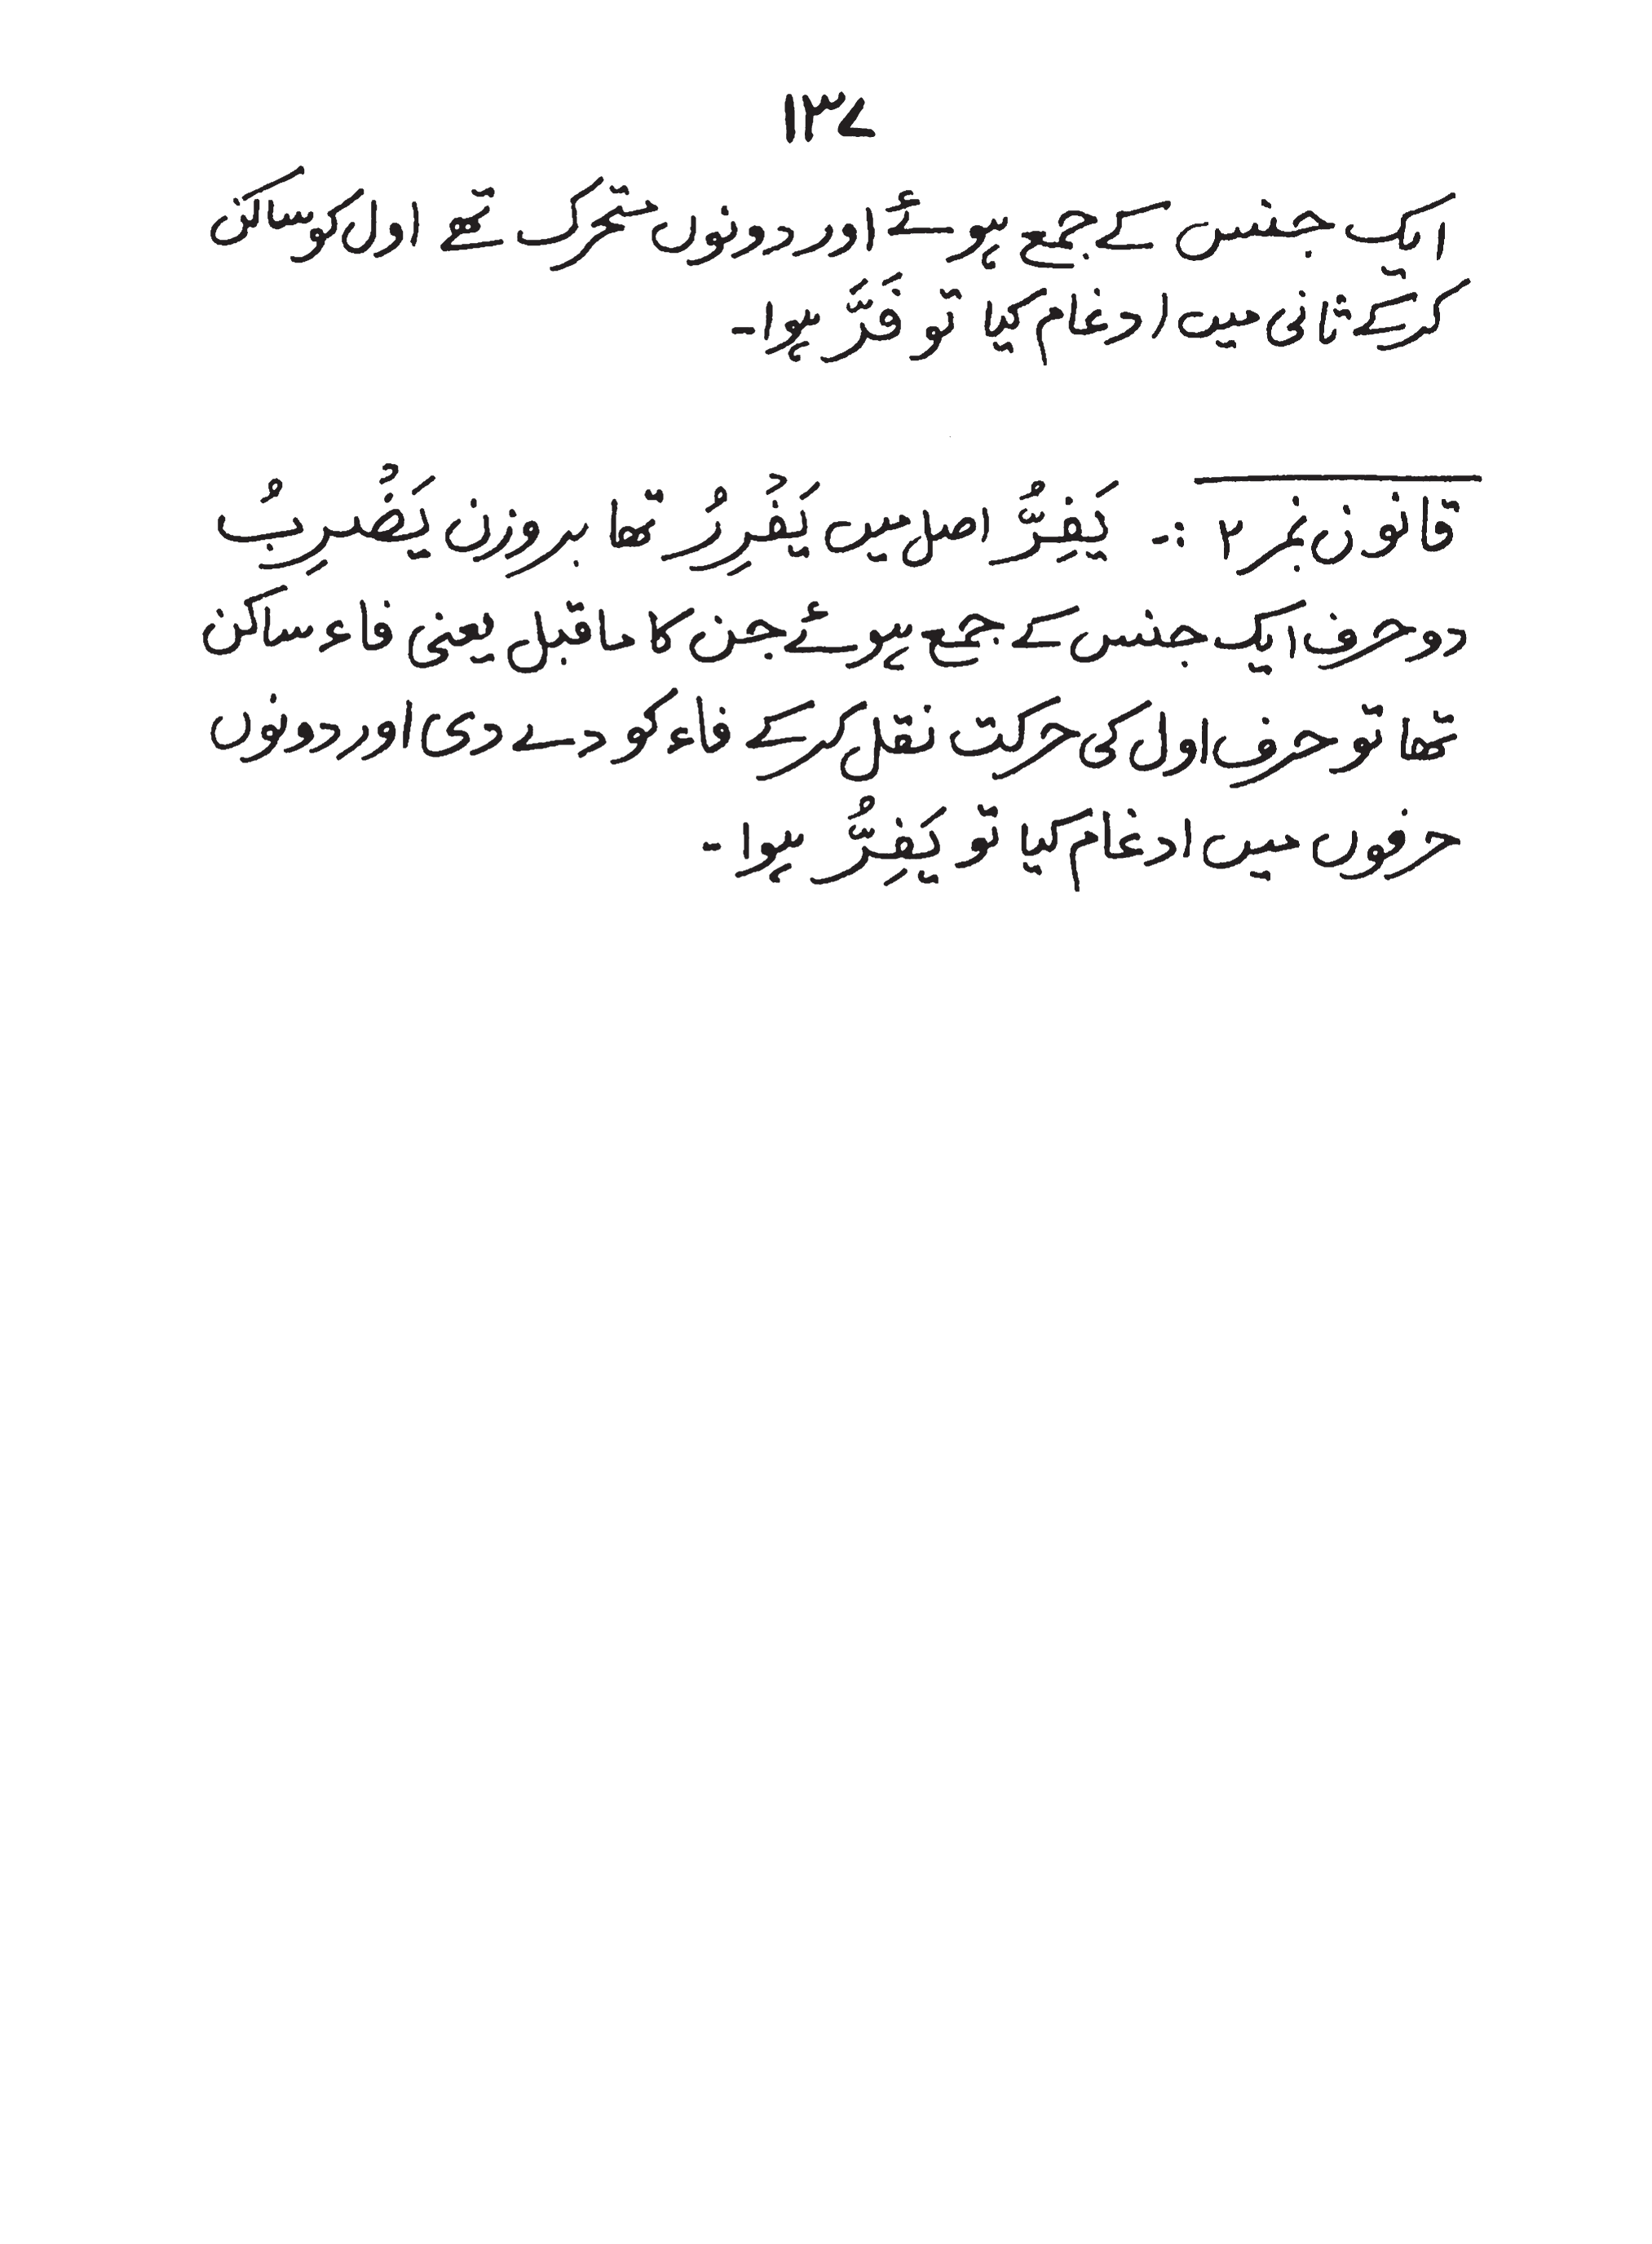 ۱۳۷
ایک جنس کے جمع ہوئے اور دونوں متحرک تھے اول کو ساکن
کرکے ثانی میں ادغام کیا تو فَرَّ ہوا۔
قانون نمبر ۲ :۔ یَفِرُّ اصل میں یَفْرِرُ تھا بروزن یَضْرِبُ
دو حرف ایک جنس کے جمع ہوئے جن کا ماقبل یعنی فاء ساکن
تھا تو حرف اول کی حرکت نقل کرکے فاء کو دے دی اور دونوں
حرفوں میں ادغام کیا تو یَفِرُّ ہوا۔